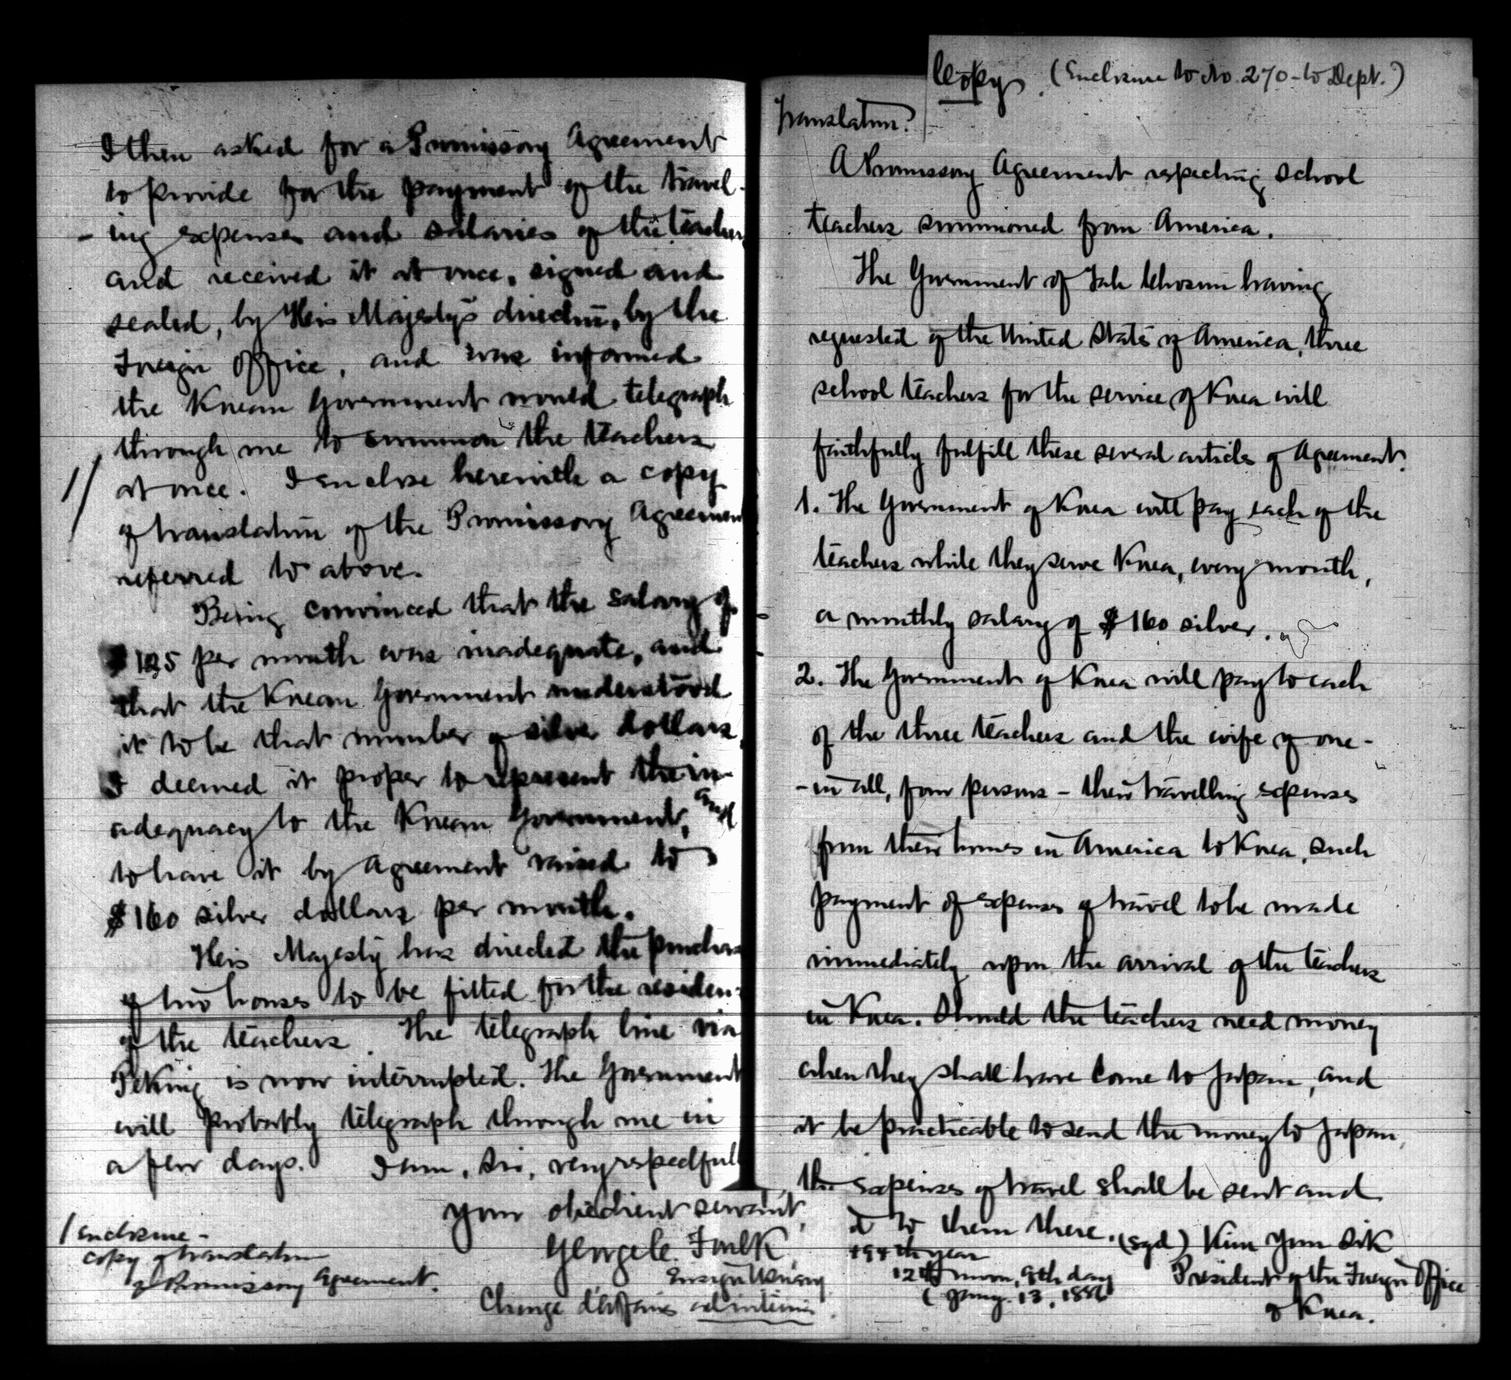 I then asked for a Promissory Agreement
to provide for the payment of the travel-
-ing expenses and salaries of the teachers
and received it at once, signed and
sealed, by His Majesty's direction, by the
Foreign Office, and was informed
the Korean Government would telegraph
through me to summon the teachers
at once. I enclose herewith a copy
of translation of the Promissory Agreement
referred to above.
Being convinced that the salary of
$125 per month was inadequate, and
that the Korean Government understood
it to be that number of silver dollars,
I deemed it proper to represent the in-
adequacy to the Korean Government, and
to have it by Agreement raised to
$160 silver dollars per month.
His Majesty has directed the purchase
of two houses to be fitted for the residen-
of the teachers. The telegraph line via
Peking is now interrupted. The Government
will probably telegraph through me in
a few days. I am, Sir, very respectfull
your obedient servant,
George C. Foulk
Ensign U.S. Navy
Chargé d'affaires ad interim
1 Enclosure -
copy of translation
of Promissory Agreement.
Copy. (Enclosure to No. 270 - to Dept.)
Translation.
A Promissory Agreement respecting school
teachers summoned from America.
The Government of Tah Chosun having
requested of the United States of America, three
school teachers for the service of Korea will
faithfully fulfill these several articles of Agreement.
1. The Government of Korea will pay each of the
teachers while they serve Korea, every month,
a monthly salary of $160 silver.
2. The Government of Korea will pay to each
of the three teachers and the wife of one-
-in all, four persons - their travelling expenses
from their homes in America to Korea, such
payment of expenses of travel to be made
immediately upon the arrival of the teachers
in Korea. Should the teachers need money
when they shall have come to Japan, and
it be practicable to send the money to Japan,
the expenses of travel shall be sent and
to them there. (sgd) Kim Yun Sik
494th year
12th moon, 9th day
(Jany. 13, 1886
President of the Foreign Office
of Korea.